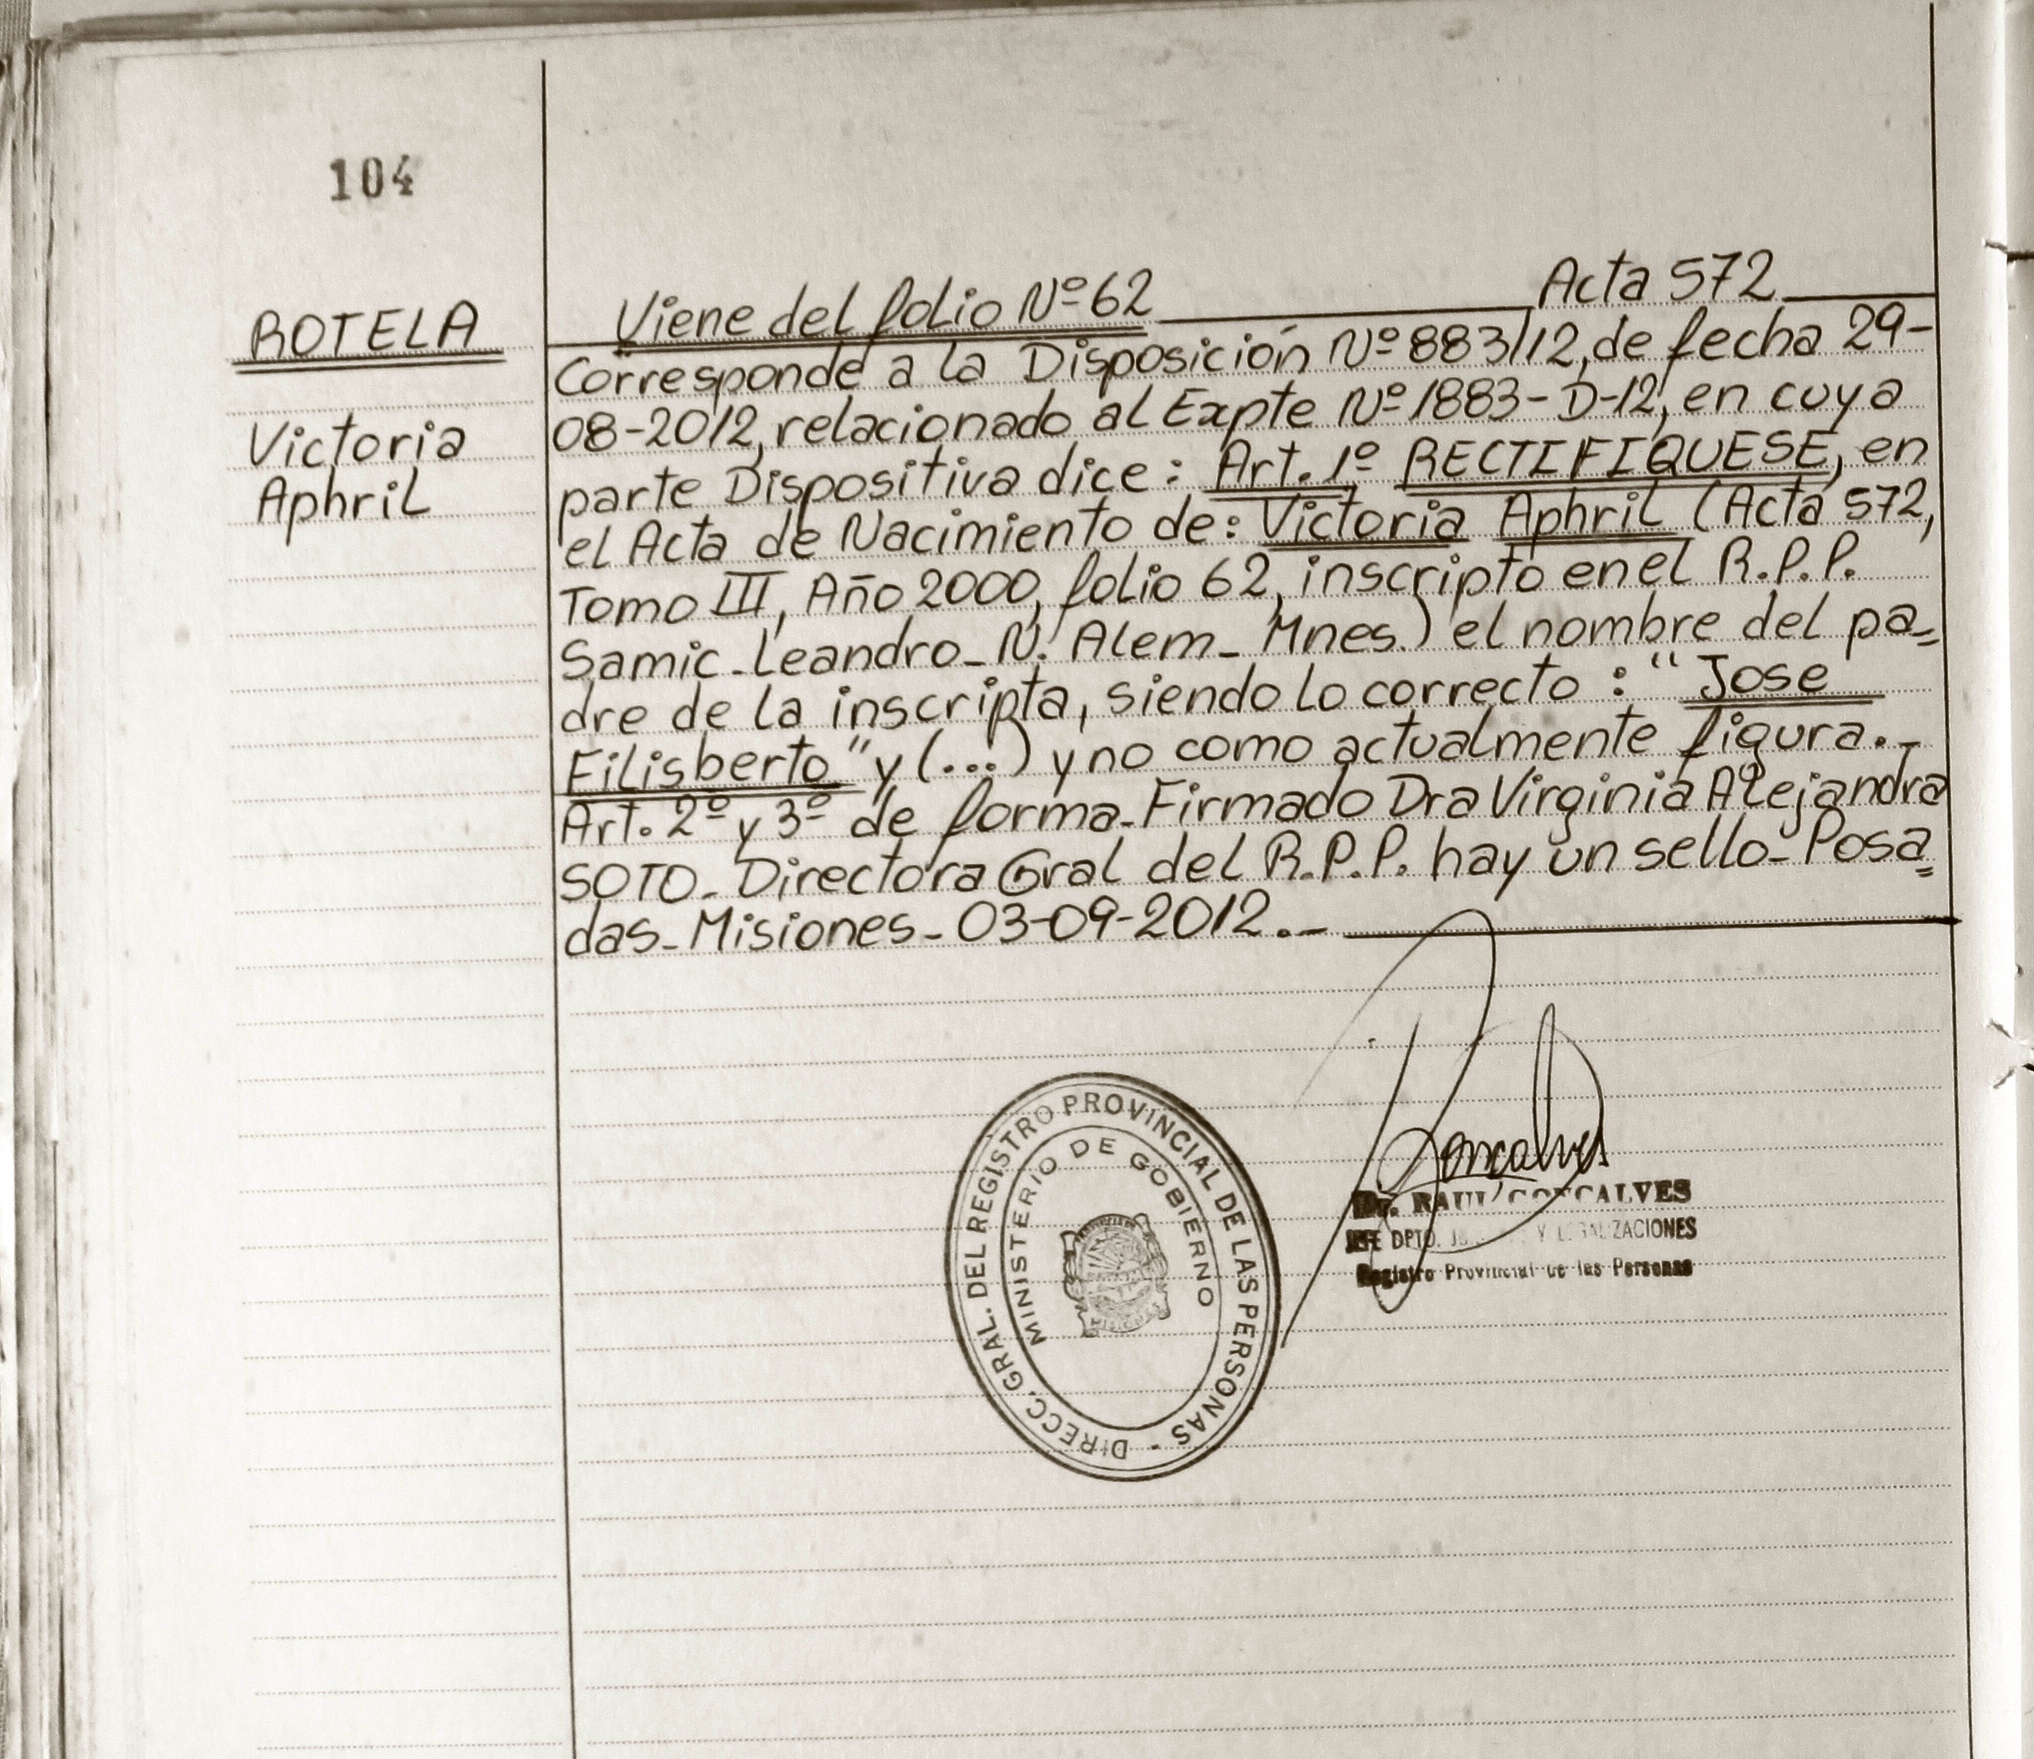 104
ROTELA
Victoria
Aphril
Viene del folio Nº 62 Acta 572
Corresponde a la Disposición Nº 883/12, de fecha 29-
08-2012, relacionado al Expte Nº 1883-D-12, en cuya
parte Dispositiva dice: Art. 1º RECTIFIQUESE, en
el Acta de Nacimiento de: Victoria Aphril (Acta 572,
Tomo III, Año 2000, folio 62, inscripto en el R.P.P.
Samic-Leandro-N. Alem-Mnes.) el nombre del pa=
dre de la inscripta, siendo lo correcto: "Jose
Filisberto" y (...) y no como actualmente figura.-
Art. 2º y 3º de forma-Firmado Dra Virginia Alejandra
SOTO-Directora Gral del R.P.P. hay un sello-Posa=
das-Misiones-03-09-2012.-
DIRECC. GRAL. DEL REGISTRO PROVINCIAL DE LAS PERSONAS -
MINISTERIO DE GOBIERNO
Goncalves
Dr. RAUL GONCALVES
JEFE DPTO. Y LEGALIZACIONES
Registro Provincial de las Personas